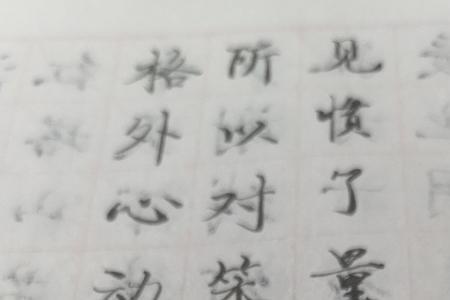 见惯了量
所以对笑
格外心动